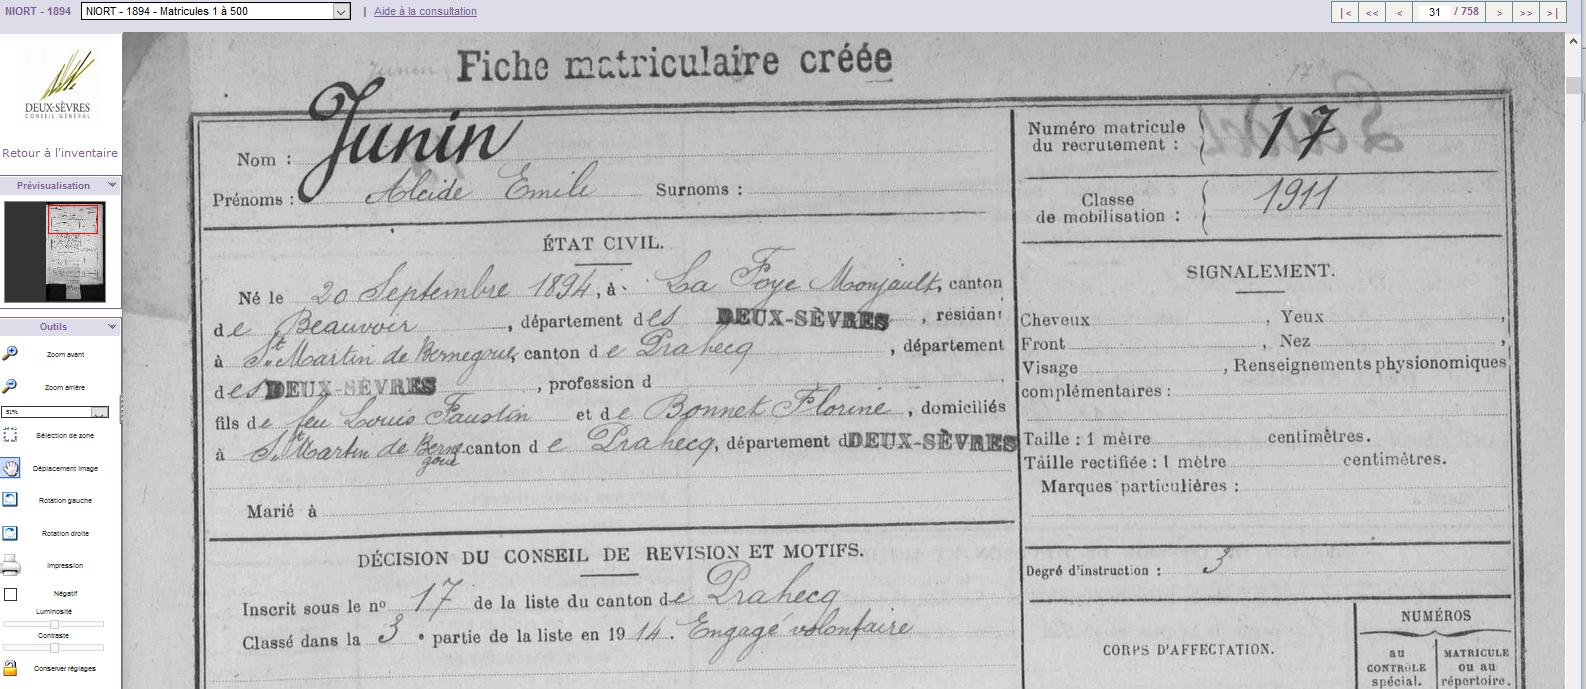 NIORT - 1894
NIORT - 1894 - Matricules 1 à 500
| Aide à la consultation
|< << < 31 / 758 > >> >|
DEUX-SÈVRES
CONSEIL GÉNÉRAL
Retour à l'inventaire
Prévisualisation
Outils
Zoom avant
Zoom arrière
81%
Sélection de zone
Déplacement Image
Rotation gauche
Rotation droite
Impression
Négatif
Luminosité
Contraste
Conserver réglages
Fiche matriculaire créée
Nom : Junin
Prénoms : Alcide Emile Surnoms :
Numéro matricule du recrutement : 17
Classe de mobilisation : 1911
ÉTAT CIVIL.
Né le 20 Septembre 1894, à La Foye Monjault, canton
de Beauvoir, département des DEUX-SÈVRES, résidant
à St Martin de Bernegoue, canton de Prahecq, département
des DEUX-SÈVRES, profession d
fils de feu Louis Faustin et de Bonnet Florine, domiciliés
à St Martin de Bernegoue canton de Prahecq, département d DEUX-SÈVRES
Marié à
SIGNALEMENT.
Cheveux , Yeux ,
Front , Nez ,
Visage , Renseignements physionomiques
complémentaires :
Taille : 1 mètre centimètres.
Taille rectifiée : 1 mètre centimètres.
Marques particulières :
Degré d'instruction : 3
DÉCISION DU CONSEIL DE REVISION ET MOTIFS.
Inscrit sous le no 17 de la liste du canton de Prahecq
Classé dans la 3e partie de la liste en 1914. Engagé volontaire
CORPS D'AFFECTATION.
NUMÉROS
au CONTRÔLE spécial.
MATRICULE ou au répertoire.